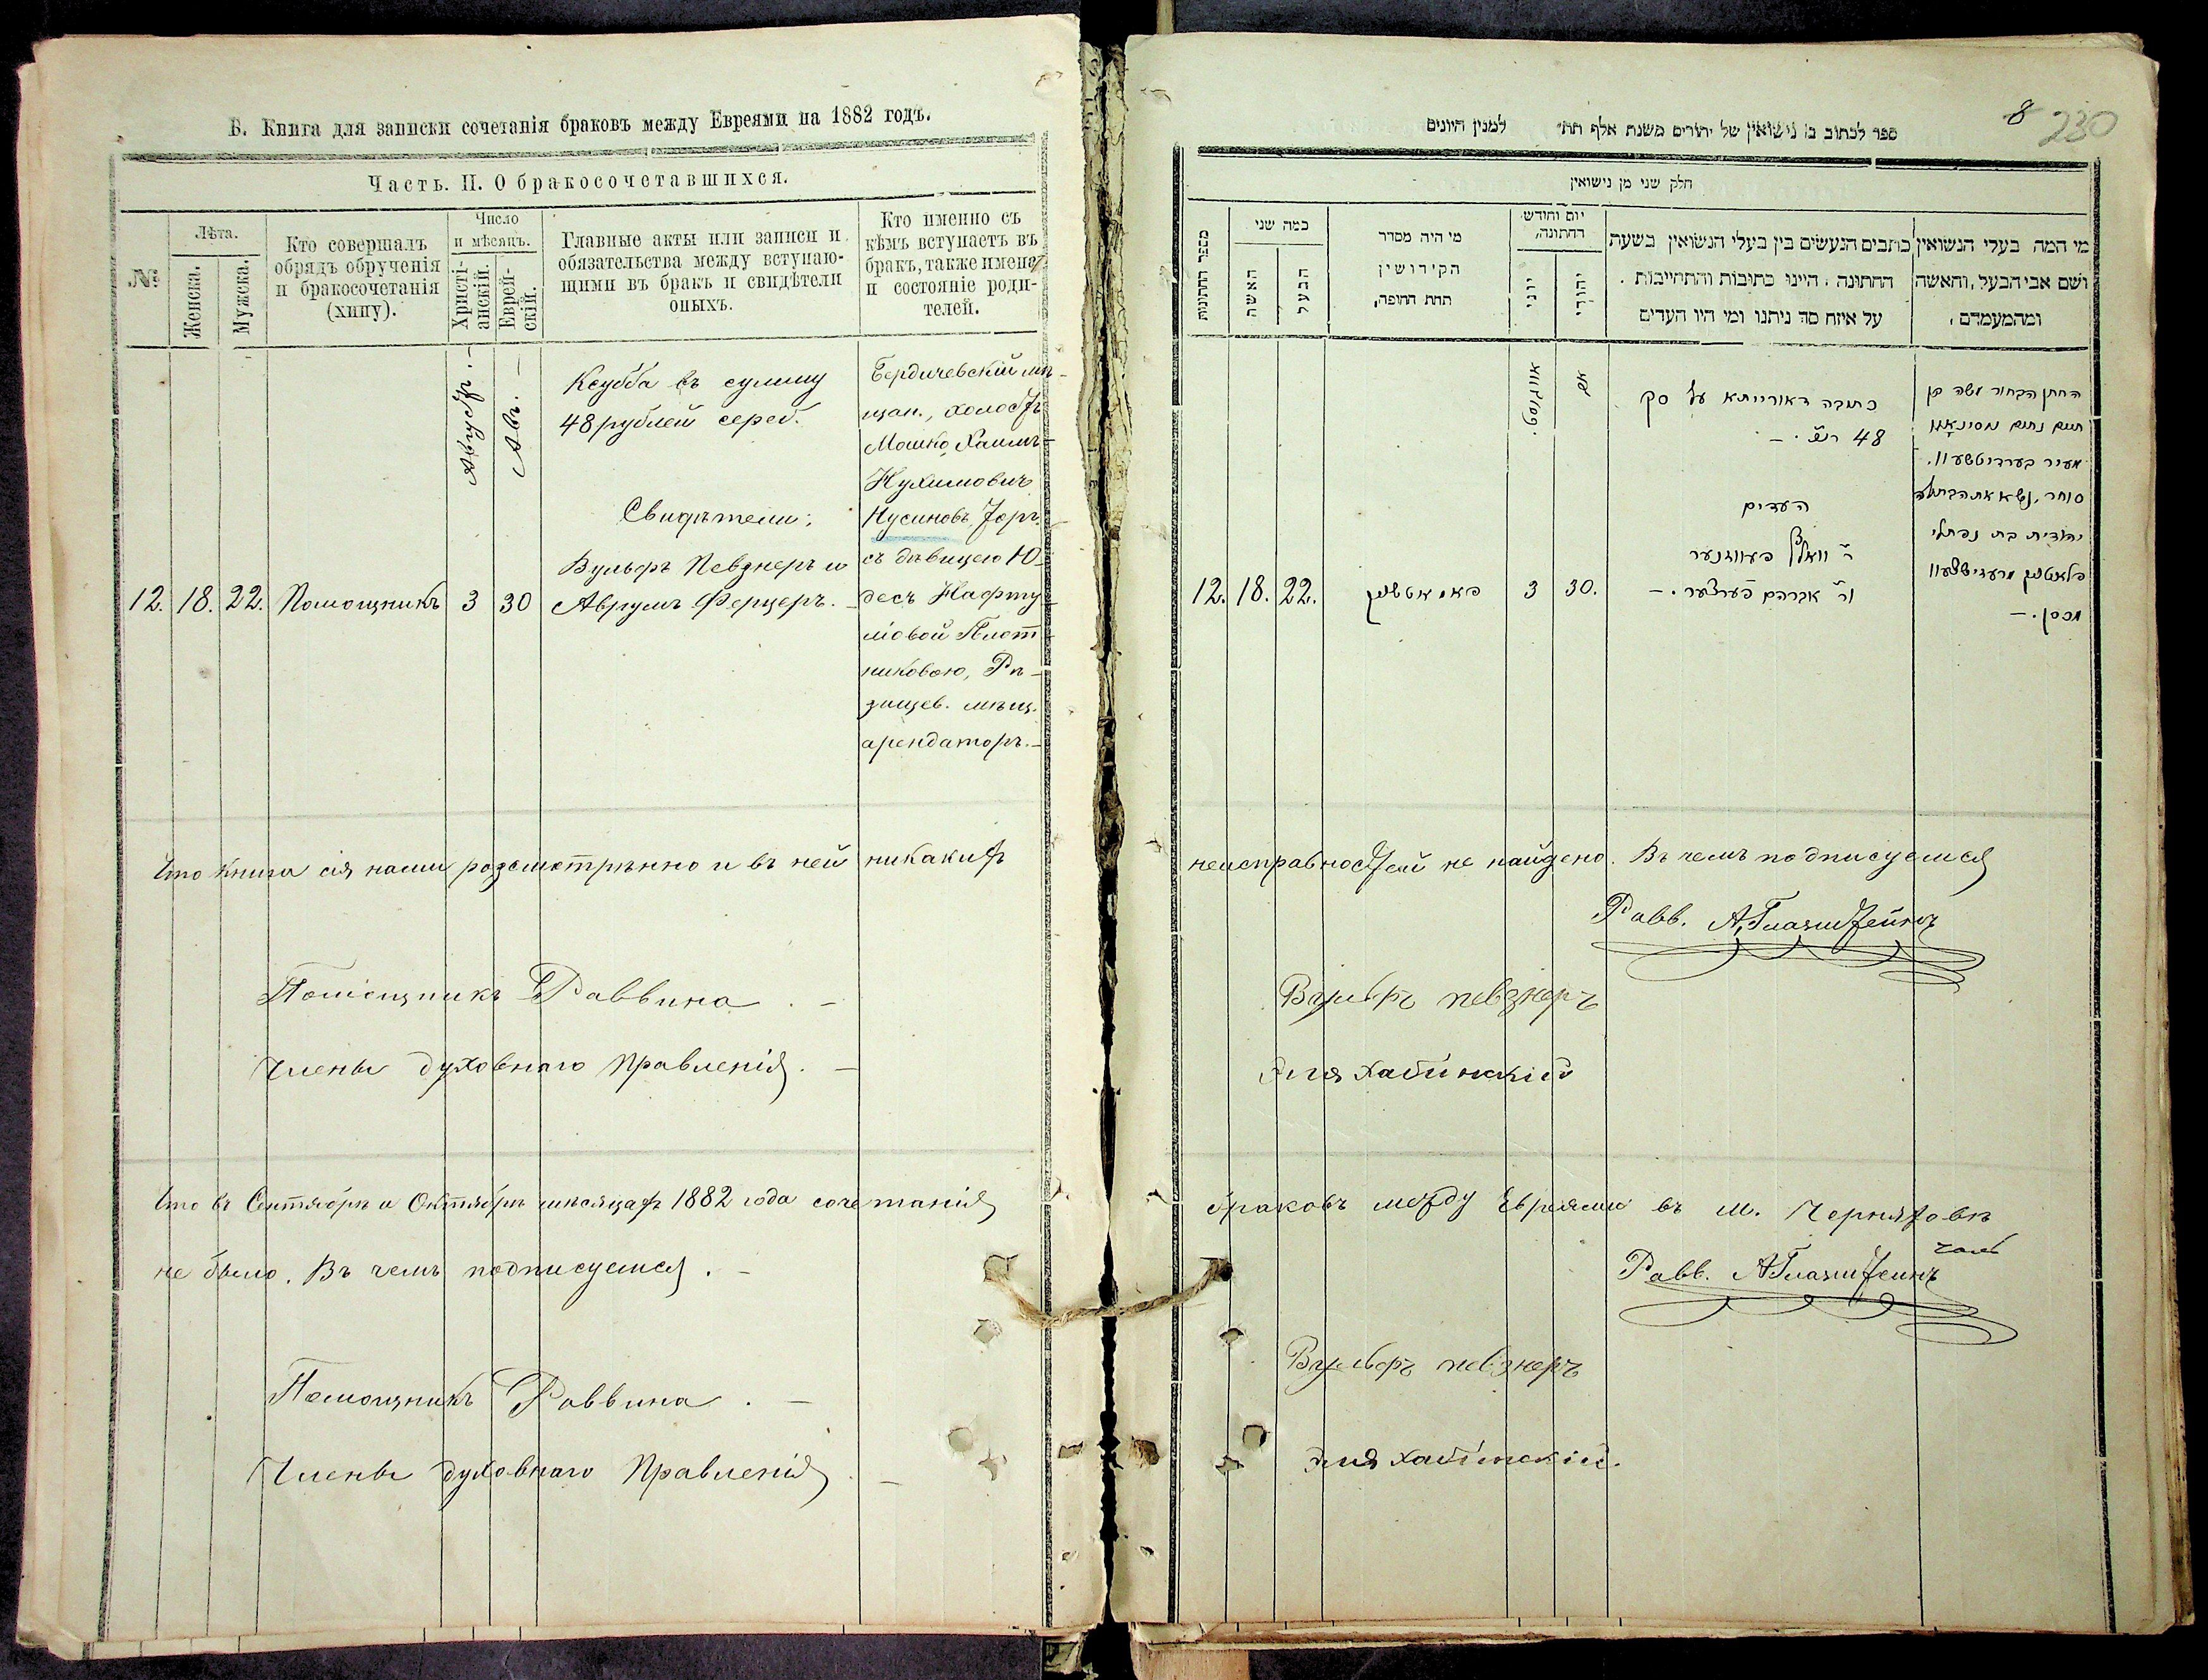 Б. Книга для записки сочетанія браковъ между Евреями на 1882 годъ.
Часть. II. О бракосочетавшихся.
№
Лѣта.
Женска.
Мужска.
Кто совершалъ
обрядъ обрученія
и бракосочетанія
(хипу).
Число
и мѣсяцъ.
Христі-
анскій.
Еврей-
скій.
Главные акты или записи и
обязательства между вступаю-
щими въ бракъ и свидѣтели
оныхъ.
Кто именно съ
кѣмъ вступаетъ въ
бракъ, также имена
и состояніе роди-
телей.
Августъ. -
Авъ. -
Ксубба въ сумму
48 рублей сереб.
Свидѣтели:
Вульфъ Певзнеръ и
Аврумъ Ферцеръ. -
12. 18. 22. Помощникъ 3 30
Бердичевскій мѣ-
щан., холостъ
Мошко, Хаимъ-
Нухимовичъ
съ дѣвицею Ю-
десъ Нафту-
ліовой Плот-
никовою, Рѣ-
зищев. мѣщ.
арендаторъ. -
Что книга сія нами розсмотрѣнно и въ ней никакихъ
Помощникъ Раввина. -
Члены духовнаго Правленія. -
Что въ Сентябрѣ и Октябрѣ мѣсяцахъ 1882 года сочетанія
не было. Въ чемъ подписуемся. -
Помощникъ Раввина. -
Члены духовнаго Правленія. -
8
230
ספר לכתוב בו נישואין של יהודים משנת אלף תת״ למנין היונים
חלק שני מן נישואין
מספר החתונות
כמה שני
האשה
הבעל
מי היה מסדר
הקידושין
תחת החופה,
יום וחודש
החתונה,
יוני
יהודי
כותבים הנעשים בין בעלי הנשואין בשעת
החתונה, היינו כתובות והתחייבות.
על איזה סך ניתנו ומי היו העדים
מי המה בעלי הנשואין
ושם אבי הבעל, והאשה
ומהמעמדם,
אויגוסט.
אב
כתובה דאורייתא על סך
48 רו״כ. -
העדים
ר׳ וואלף פעווזנער
ור׳ אברהם פערצער. -
12. 18. 22. 3 30.
החתן הבחור משה בן
חיים נחום
מעיר בערדיטשעוו.
סוחר. נשא את הבתולה
יהודית בת נפתלי
неисправностей не найдено. Въ чемъ подписуемся
Равв. А. Глазштейнъ
Вульфъ певзнеръ
Эля Хабинскій
браковъ между Евреями въ м. Черняховѣ
Равв. А Глазштейнъ
Вульфъ певзнеръ
Эля Хабинскій.